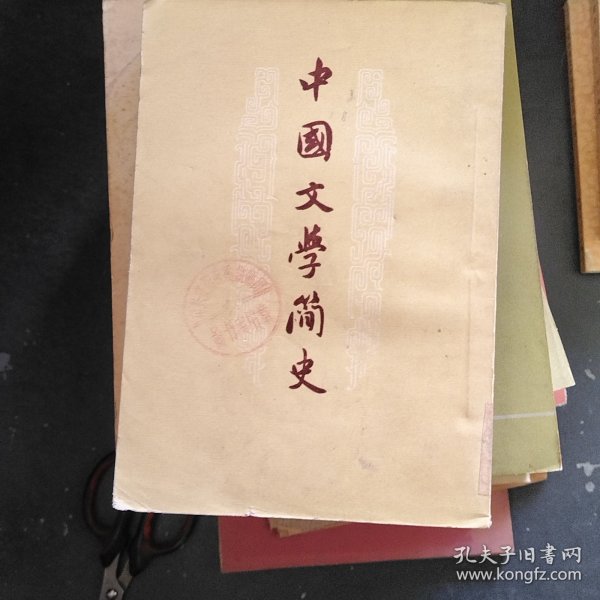 中國文学简史
孔夫子旧書网
www.kongfz.com